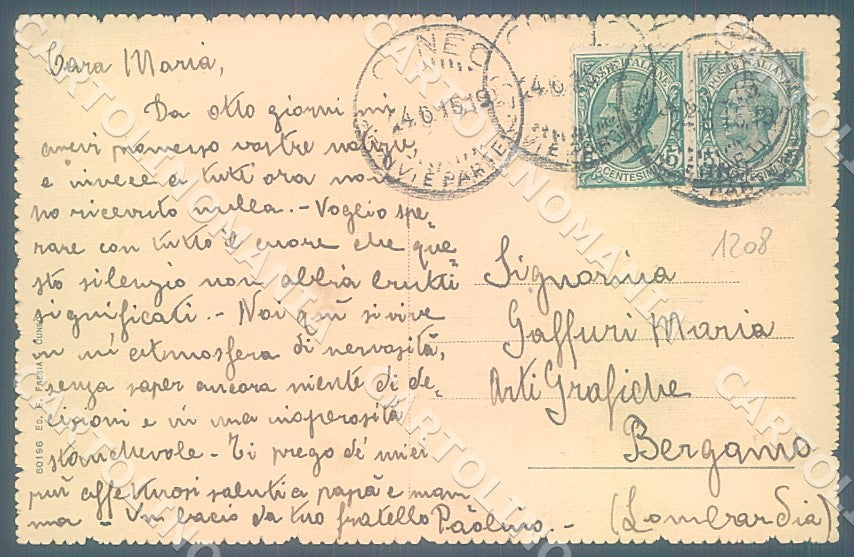 Cara Maria,
Da otto giorni mi
avevi promesso vostre notizie,
e invece a tutt'ora non
ho ricevuto nulla. - Voglio spe-
rare con tutto il cuore che que-
sto silenzio non abbia brutti
significati. - Noi qui si vive
in un'atmosfera di nervosità,
senza saper ancora niente di de-
cisioni e in una inoperosità
stanchevole - Ti prego di miei
più affettuosi saluti a papà e mam
ma - Un bacio da tuo fratello Paolino. -
Signorina
Gaffuri Maria
Arti Grafiche
Bergamo
(Lombardia)
1208
CUNEO
24.6.15.19
FERROVIE PARTENZA
POSTE ITALIANE
CENTESIMI 5
POSTE ITALIANE
CENTESIMI
60196 ED. F. FRESIA - CUNEO
CARTOLINOMANIA